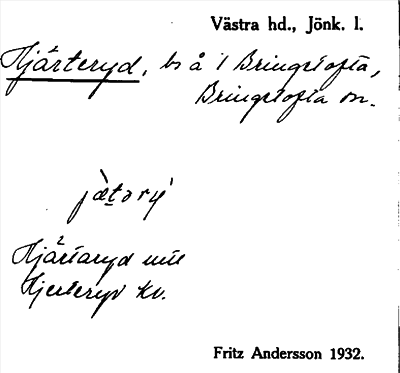 Västra hd., Jönk. l.
Hjärteryd, bs å i Bringetofta,
Bringetofta sn.
Hjärtaryd
Hjerteryd kv.
Fritz Andersson 1932.